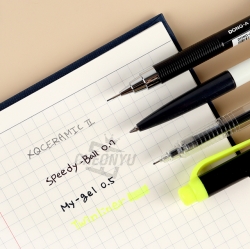 DONG-A
XQCERAMIC II
Speedy-Ball 0.7
My-gel 0.5